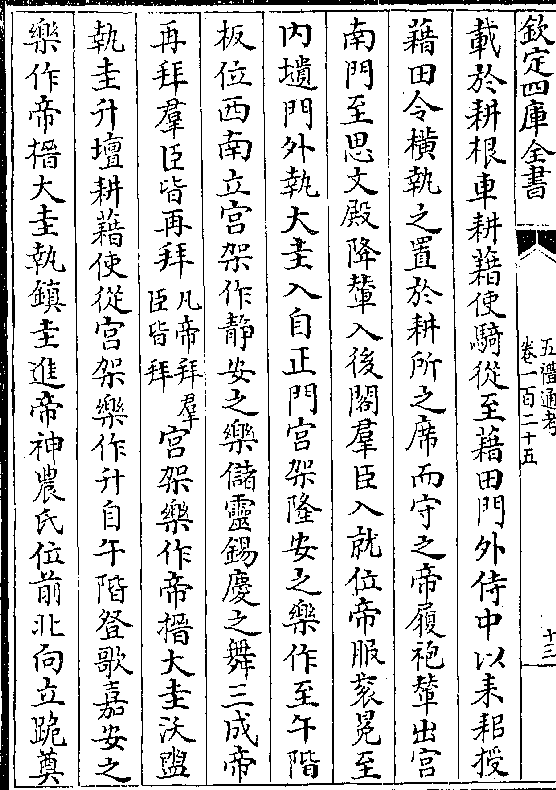 欽定四庫全書
五禮通考
卷一百二十五
十三
載於耕根車耕藉使騎從至藉田門外侍中以耒耜授
藉田令橫執之置於耕所之席而守之帝履袍輦出宮
南門至思文殿降輦入後閣羣臣入就位帝服衮冕至
内壝門外執大圭入自正門宮架隆安之樂作至午階
板位西南立宮架作静安之樂儲靈錫慶之舞三成帝
再拜羣臣皆再拜凡帝拜羣臣皆拜宮架樂作帝搢大圭沃盥
執圭升壇耕藉使從宮架樂作升自午階登歌嘉安之
樂作帝搢大圭執鎮圭進帝神農氏位前北向立跪奠